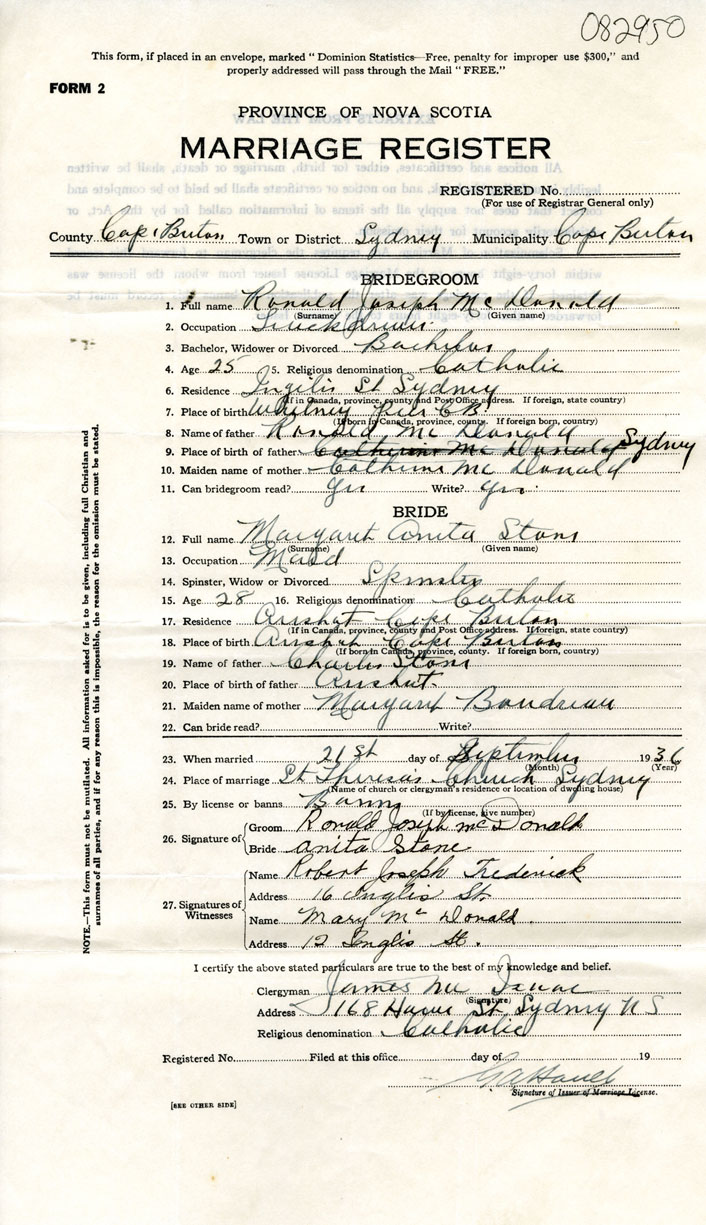 082950
This form, if placed in an envelope, marked "Dominion Statistics—Free, penalty for improper use $300," and
properly addressed will pass through the Mail "FREE."
FORM 2
PROVINCE OF NOVA SCOTIA
MARRIAGE REGISTER
REGISTERED No.
(For use of Registrar General only)
County Cape Breton Town or District Sydney Municipality Cape Breton
BRIDEGROOM
1. Full name Ronald Joseph McDonald
(Surname) (Given name)
2. Occupation Truck driver
3. Bachelor, Widower or Divorced Bachelor
4. Age 25 5. Religious denomination Catholic
6. Residence Inglis St Sydney
(If in Canada, province, county and Post Office address. If foreign, state country)
7. Place of birth Whitney Pier C B
(If born in Canada, province, county. If foreign born, country)
8. Name of father Ronald McDonald
9. Place of birth of father Catherine McDonald Sydney
10. Maiden name of mother Catherine McDonald
11. Can bridegroom read? yes Write? yes
BRIDE
12. Full name Margaret Anita Stone
(Surname) (Given name)
13. Occupation Maid
14. Spinster, Widow or Divorced Spinster
15. Age 28 16. Religious denomination Catholic
17. Residence Arichat Cape Breton
(If in Canada, province, county and Post Office address. If foreign, state country)
18. Place of birth Arichat Cape Breton
(If born in Canada, province, county. If foreign born, country)
19. Name of father Charles Stone
20. Place of birth of father Arichat
21. Maiden name of mother Margaret Boudreau
22. Can bride read? Write?
23. When married 21st day of September 1936
(Month) (Year)
24. Place of marriage St Theresas Church Sydney
(Name of church or clergyman's residence or location of dwelling house)
25. By license or banns Banns
(If by license, give number)
26. Signature of Groom Ronald Joseph McDonald
Bride Anita Stone
27. Signatures of Witnesses Name Robert Joseph Frederick
Address 16 Inglis St.
Name Mary McDonald
Address 12 Inglis St.
I certify the above stated particulars are true to the best of my knowledge and belief.
Clergyman James Mc Isaac
(Signature)
Address 168 St, Sydney N S
Religious denomination Catholic
Registered No. Filed at this office day of 19
Signature of Issuer of Marriage License.
[SEE OTHER SIDE]
NOTE.—This form must not be mutilated. All information asked for is to be given, including full Christian and
surnames of all parties, and if for any reason this is impossible, the reason for the omission must be stated.